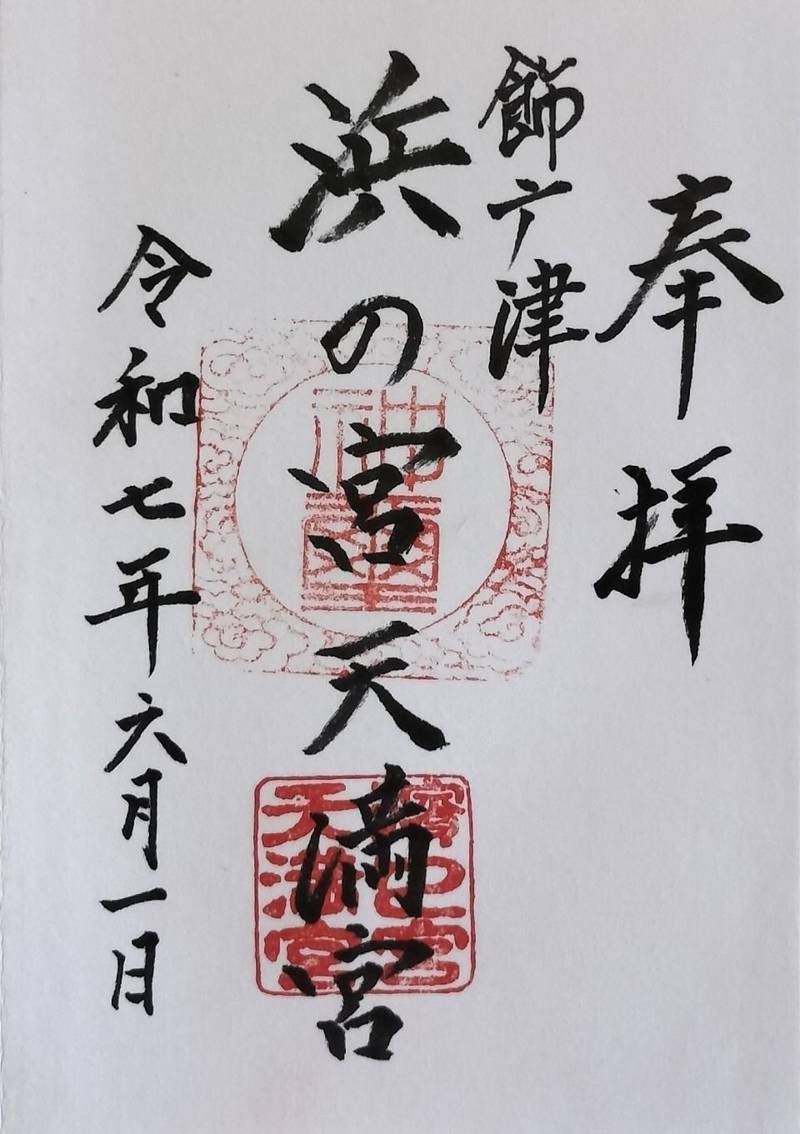 奉拝
飾广津
浜の宮天満宮
令和七年六月一日
神璽
濱之宮
天満宮